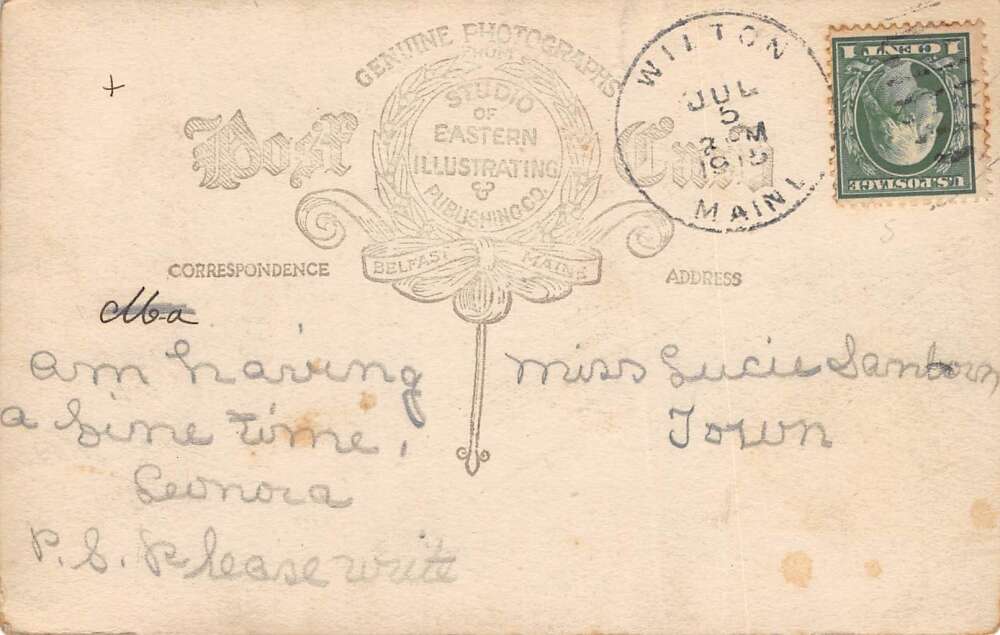 GENUINE PHOTOGRAPHS
FROM
STUDIO
OF
EASTERN
ILLUSTRATING
&
PUBLISHING CO.
BELFAST MAINE
Post Card
WILTON
JUL
5
MAINE
1 CENT 1
U.S. POSTAGE
CORRESPONDENCE
ADDRESS
am having
a fine time,
Leonora
P.S. Please write
Miss Lucie Sanborn
Town